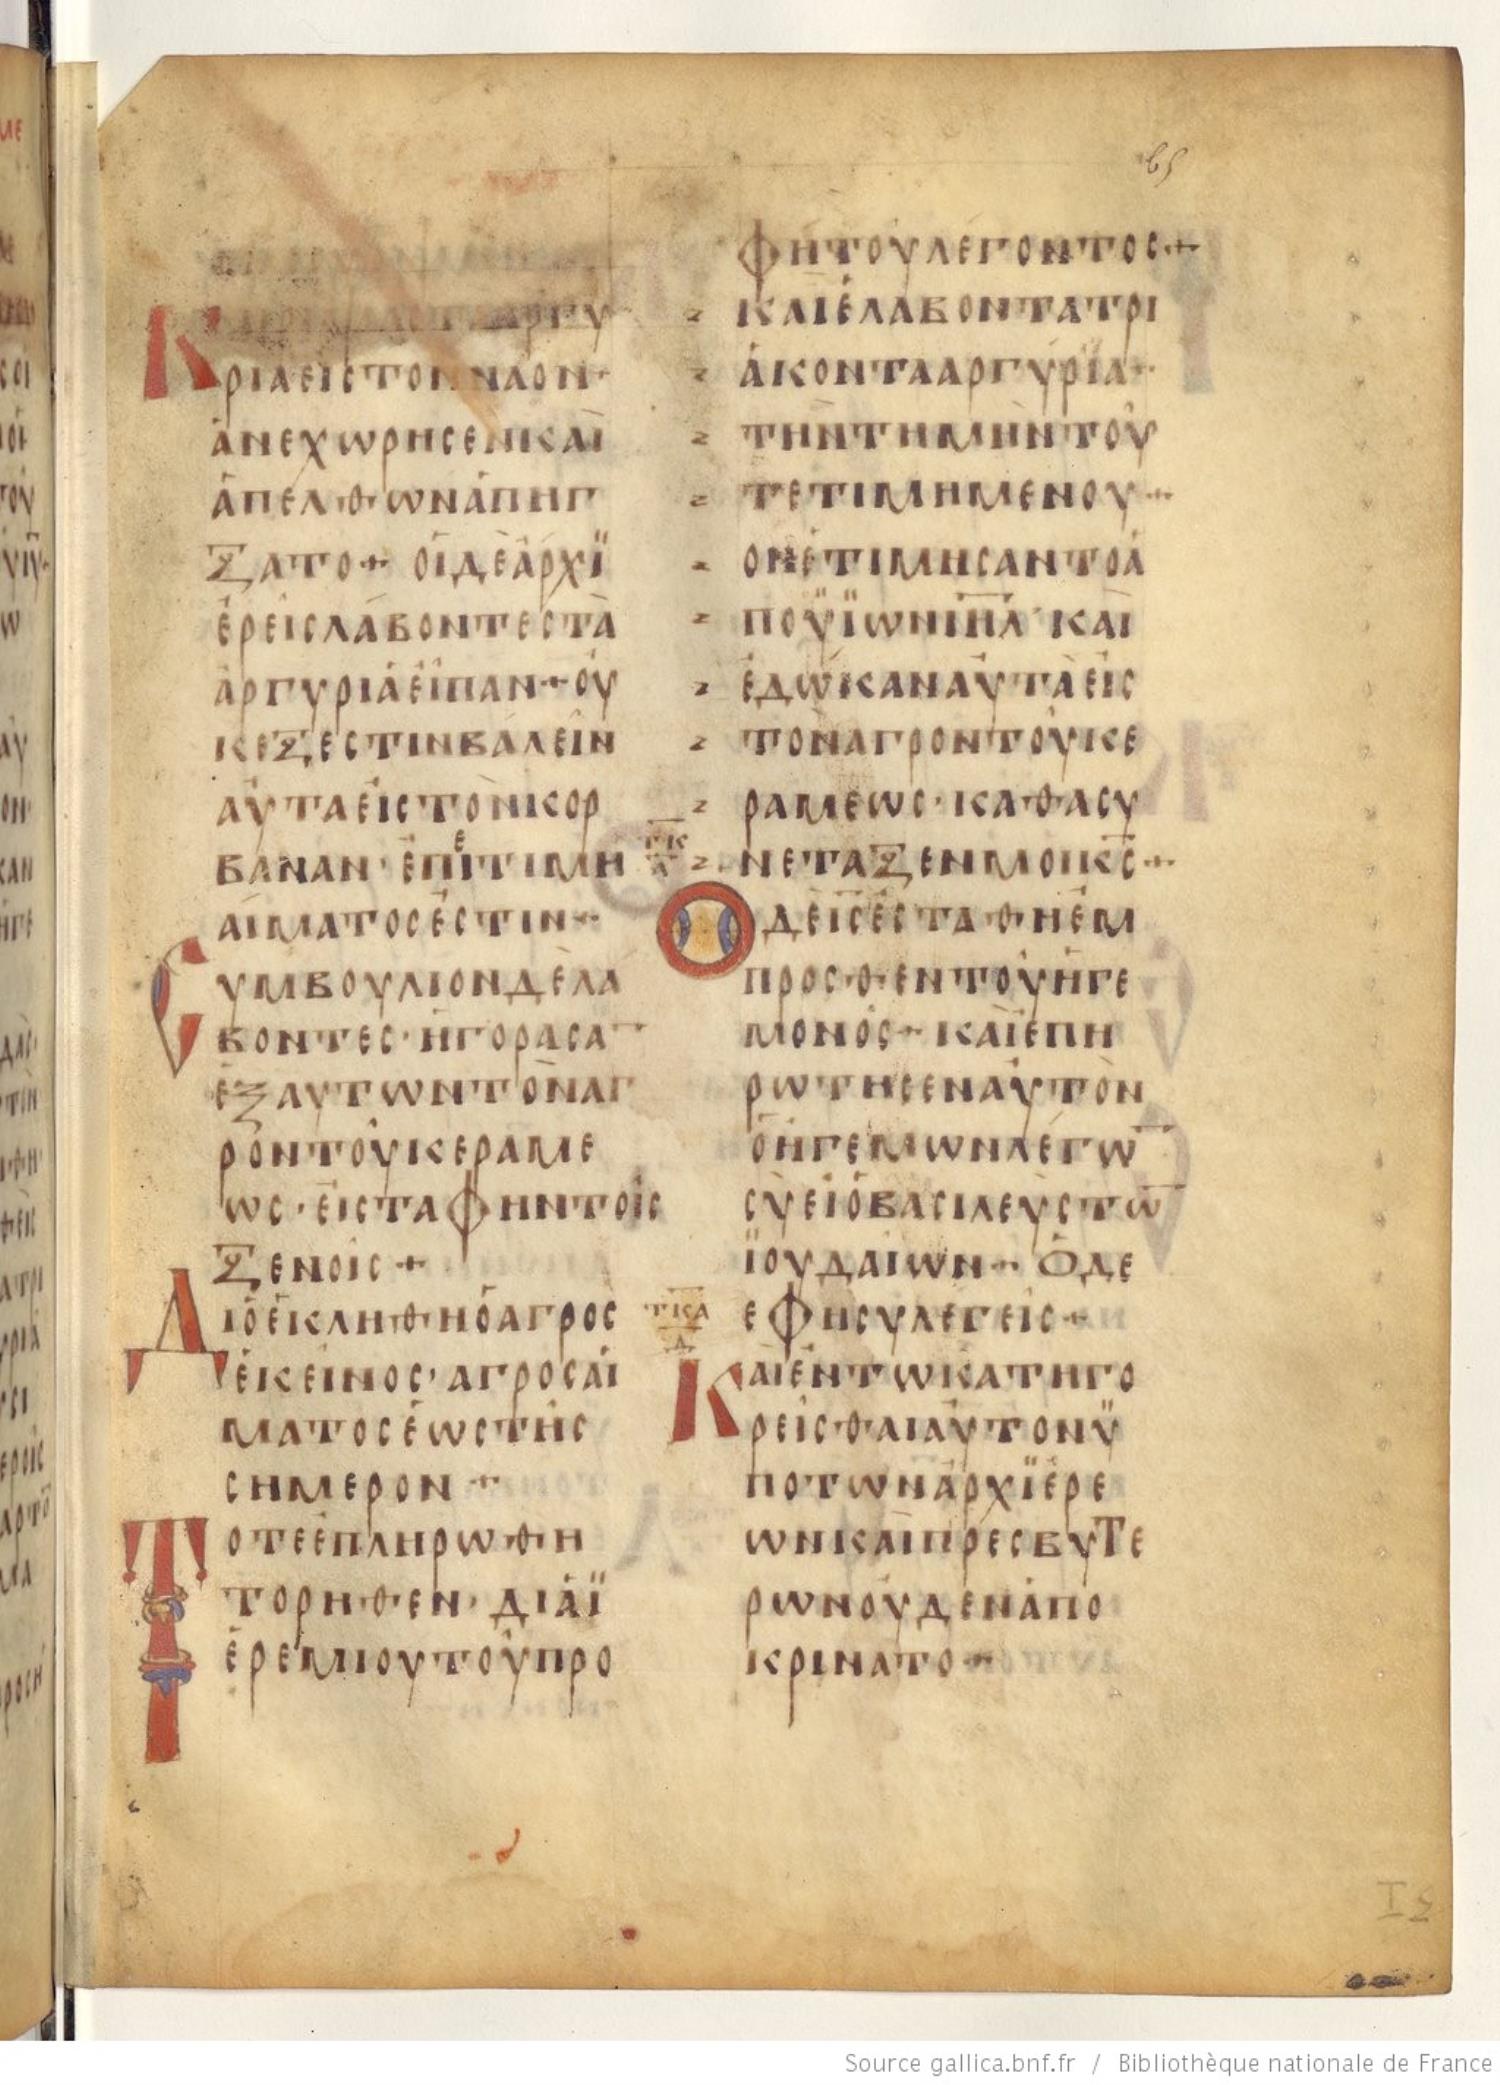 65
ΡΙΑΕΙΣΤΟΝΝΑΟΝ·
ἈΝΕΧΩΡΗΣΕΝΚΑῚ
ἈΠΕΛΘΩΝἈΠΗΓ
ΞΑΤΟ+ ΟἹΔΕἈΡΧΪ
ΕΡΕΙΣΛΑΒΟΝΤΕΣΤᾺ
ἈΡΓΥΡΙΑΕΙΠΑΝ+ΟΥ
ΚΕΞΕΣΤΙΝΒΑΛΕΙΝ
ΑΥΤΑΕΙΣΤΟΝΚΟΡ
ΒΑΝΑΝ·ΕΠΕΙΤΙΜΗ
ΑΙΜΑΤΟΣΕΣΤΙΝ+
ΣΥΜΒΟΥΛΙΟΝΔΕΛΑ
ΒΟΝΤΕΣ·ΗΓΟΡΑΣΑ¯
ΕΞΑΥΤΩΝΤΟΝΑΓ
ΡΟΝΤΟΥΚΕΡΑΜΕ
ΩΣ·ΕΙΣΤΑΦΗΝΤΟΙΣ
ΞΕΝΟΙΣ+
ΔΙΟΕΚΛΗΘΗΟΑΓΡΟΣ
ΕΚΕΙΝΟΣ·ΑΓΡΟΣΑΙ
ΜΑΤΟΣΕΩΣΤΗΣ
ΣΗΜΕΡΟΝ+
ΤΟΤΕΕΠΛΗΡΩΘΗ
ΤΟΡΗΘΕΝ·ΔΙΑΪ
ΕΡΕΜΙΟΥΤΟΥΠΡΟ
ΦΗΤΟΥΛΕΓΟΝΤΟΣ+
ΚΑΙΕΛΑΒΟΝΤΑΤΡΙ
ΑΚΟΝΤΑΑΡΓΥΡΙΑ+
ΤΗΝΤΗΜΗΝΤΟΥ
ΤΕΤΙΜΗΜΕΝΟΥ+
ΟΝΕΤΙΜΗΣΑΝΤΟΑ
ΠΟΫΪΩΝΙΗΛ̅·ΚΑΙ
ΕΔΩΚΑΝΑΥΤΑΕΙΣ
ΤΟΝΑΓΡΟΝΤΟΥΚΕ
ΡΑΜΕΩΣ·ΚΑΘΑΣΥ
ΝΕΤΑΞΕΝΜΟΙΚΣ̅+
ΟΔΕΙΣΕΣΤΑΘΗΕΜ
ΠΡΟΣΘΕΝΤΟΥΗΓΕ
ΜΟΝΟΣ+ΚΑΙΕΠΗ
ΡΩΤΗΣΕΝΑΥΤΟΝ
ΟΗΓΕΜΩΝΛΕΓΩ¯
ΣΥΕΙΟΒΑΣΙΛΕΥΣΤΩ¯
ΪΟΥΔΑΙΩΝ+ΟΔΕ
ΤΚΑ
Δ
ΕΦΗΣΥΛΕΓΕΙΣ+
ΚΑΙΕΝΤΩΚΑΤΗΓΟ
ΡΕΙΣΘΑΙΑΥΤΟΝΫ
ΠΟΤΩΝΑΡΧΪΕΡΕ
ΩΝΚΑΙΠΡΕΣΒΥΤΕ
ΡΩΝΟΥΔΕΝΑΠΟ
ΚΡΙΝΑΤΟ+
Source gallica.bnf.fr / Bibliothèque nationale de France